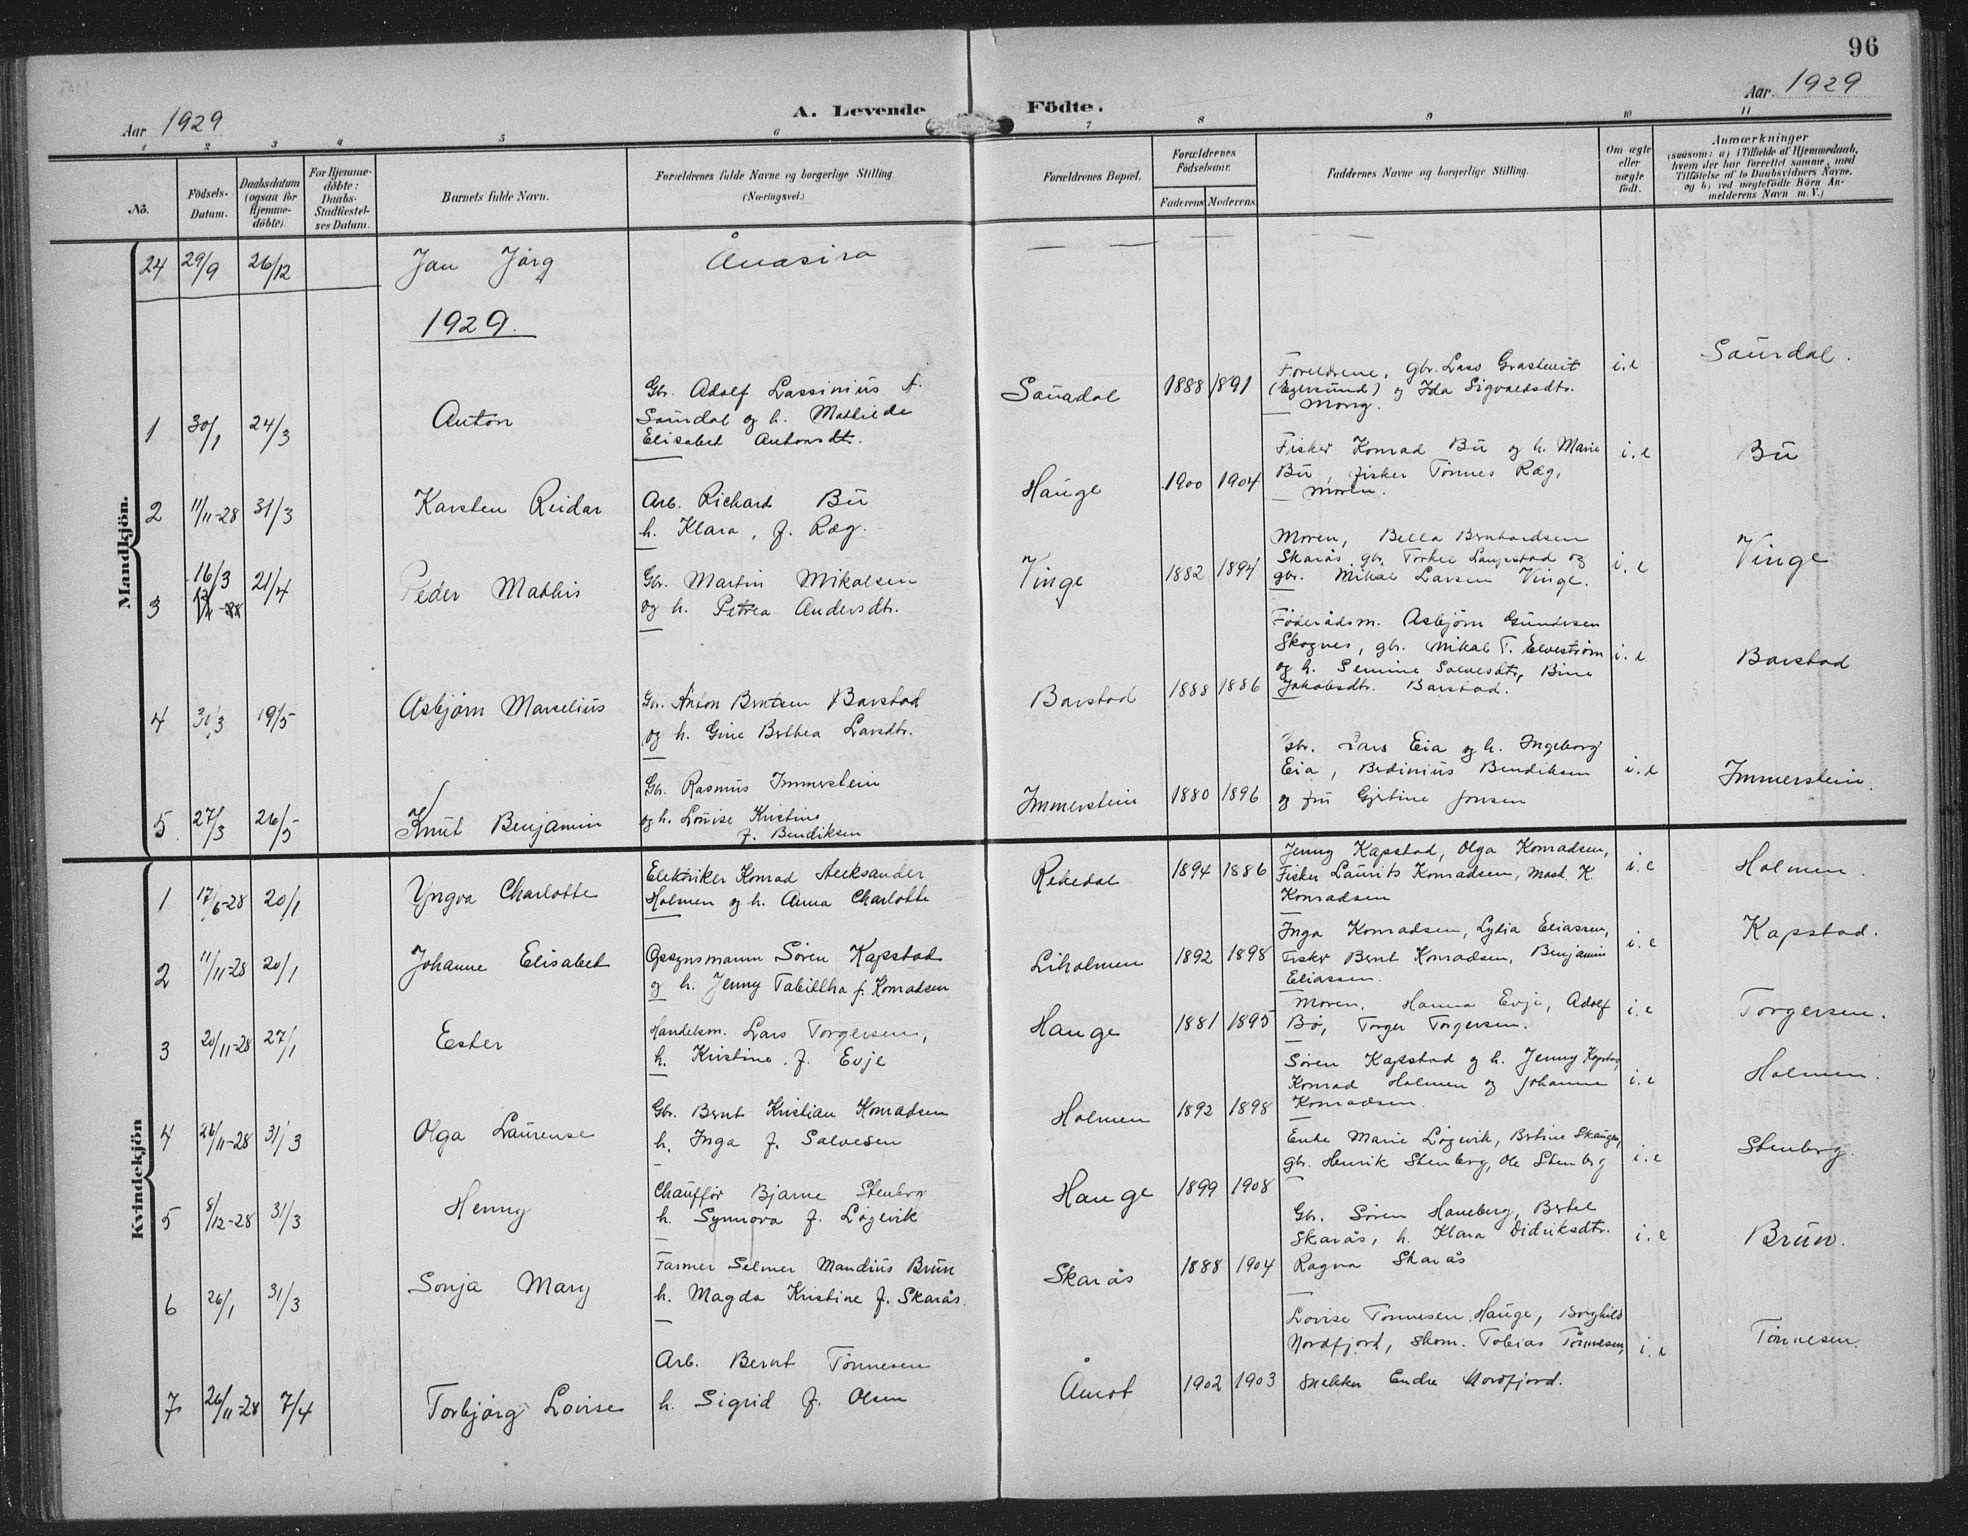 96
Aar 1929
A. Levende Födte.
Aar. 1929
1 2 3 4 5 6 7 8 9 10 11
No.
Födsels-
Datum.
Daabsdatum
(ogsaa for
Hjemme-
döbte).
For Hjemme-
döbte:
Daabs-
Stadfæstel-
ses Datum.
Barnets fulde Navn.
Forældrenes fulde Navne og borgerlige Stilling.
(Næringsvei.)
Forældrenes Bopæl.
Forældrenes
Födselsaar.
Faderens Moderens
Faddernes Navne og borgerlige Stilling.
Om ægte
eller
uægte
födt.
Anmærkninger
(saasom: a) i Tilfælde af Hjemmedaab,
hvem der har forrettet samme, med
Tilföielse af to Daabsvidners Navne,
og b) ved uægtefödte Börn An-
melderens Navn m. V.)
Mandkjön.
24 29/9 26/12 Jan Jörg Ånasira — — — —
1929.
1 30/1 24/3 Anton
Gbr. Adolf Lassinius
Saurdal og h. Mathilde
Elisabet Antonsdtr.
Saurdal 1888 1891
Foreldrene, gbr. Lars
(Egersund) og Ida Sigvaldsdtr.
i.e Saurdal.
2 11/11-28 31/3 Karsten Reidar
Arb. Richard Bu
h. Klara, f. Ræg.
Hauge 1900 1904
Fisker Konrad Bu og h. Marie
Bu, fisker Tönnes Ræg,
Moren.
i.e Bu
3 16/3 21/4 Peder Mathis
Gbr. Martin Mikalsen
og h. Petrea Andersdtr.
Vinge 1882 1894
Moren, Bella Bernhardsen
Skarås, gbr. Torkel Langestad og
gbr. Mikal Larsen Vinge.
i.e Vinge
4 31/3 19/5 Asbjørn Marselius
Gbr. Anton Berntsen Barstad
og h. Gine Berthea Larsdtr.
Barstad 1888 1886
Föderådsm. Asbjørn Gundersen
Skognes, gbr. Mikal T. Elvestrøm
og h. Semine Salvesdtr, Bine
Jakobsdtr. Barstad.
i.e Barstad
5. 27/3 26/5 Knut Benjamin
Gbr. Rasmus Immerstein
og h. Louise Kristine
f. Bendiksen
Immerstein 1880 1896
Gbr. Lars Eia og h. Ingeborg
Eia, Berdinius Bendiksen
og fru Gjertine Jonsen
i.e Immerstein.
Kvindekjön
1 17/6-28 20/1 Yngva Charlotte
Elektriker Konrad Aleksander
Holmen og h. Anna Charlotte
Rekedal 1894 1886
Jenny Kapstad, Olga Konradsen,
Fisker Laurits Konradsen, Mask. K.
Konradsen
i.e Holmen.
2 11/11-28 20/1 Johanne Elisabet
Opsynsmann Søren Kapstad
og h. Jenny Tabittha f. Konradsen
Liholmen 1892 1898
Inga Konradsen, Lydia Eliassen,
Fisker Bernt Konradsen, Benjamin
Eliassen.
i.e Kapstad.
3 20/11-28 27/1 Ester
Handelsm. Lars Torgersen,
h. Kristine f. Evje
Hauge 1881 1895
Moren, Hanna Evje, Adolf
Bø, Torger Torgersen.
i.e Torgersen.
4 26/11-28 31/3 Olga Laurense
Gbr. Bernt Kristian Konradsen
h. Inga f. Salvesen
Holmen 1892 1898
Søren Kapstad og h. Jenny Kapstad,
Konrad Holmen og Johanne
Konradsen.
i.e Holmen.
5 8/12-28 31/3 Henny
Chauffør Bjarne Stenberg
h. Synnøva f. Løgevik
Hauge 1899 1908
Enke Marie Løgevik, Bertine Skaugen,
gbr. Henrik Stenberg, Ole Stenberg
i.e Stenberg.
6 26/1 31/3 Sonja Mary
Farmer Selmer Mandius Brun
h. Magda Kristine f. Skarås.
Skarås 1888 1904
Gbr. Søren Haneberg, Bertel
Skarås, h. Klara Didriksdtr.
Ragna Skarås
i.e Brun.
7 26/11-28 7/4 Torbjørg Lovise
Arb. Bernt Tönnesen
h. Sigrid f. Olsen
Åmot 1902 1903
Lovise Tönnesen Hauge, Borghild
Nordfjord, Skom. Tobias Tönnesen,
snekker Endre Nordfjord.
i.e Tönnesen.